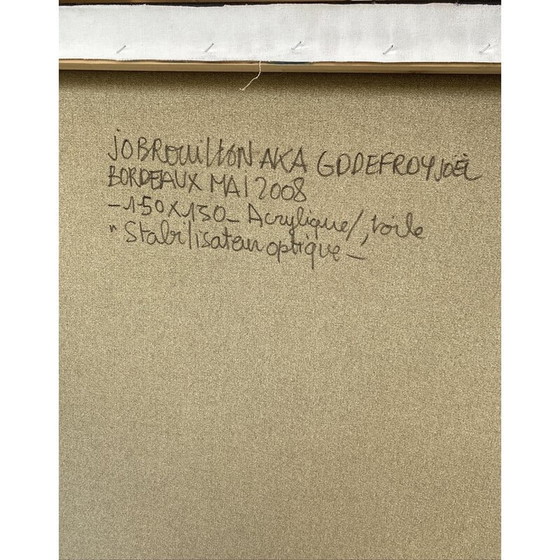 jo BROUILLON AKA GODEFROY JOËL
BORDEAUX MAI 2008
-150X150- Acrylique/, toile
" Stabilisateur optique -